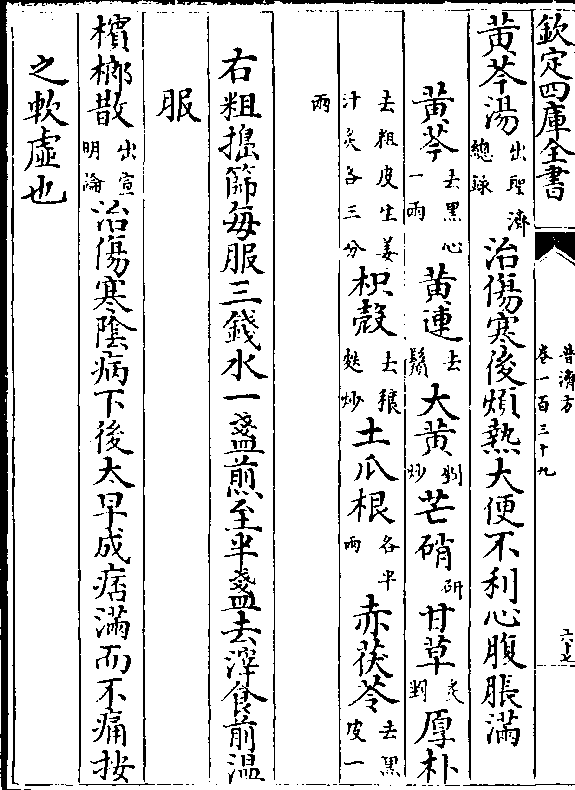 欽定四庫全書
普濟方
卷一百三十九
六十七
黄芩湯出聖濟總録治傷寒後煩熱大便不利心腹脹滿
黄芩去黑心一兩黄連去鬚大黄剉炒芒硝研甘草炙剉厚朴
去粗皮生姜汁炙各三分枳殻去穰麩炒土瓜根各半兩赤茯苓去黑皮一
兩
右粗搗篩每服三錢水一盞煎至半盞去滓食前溫
服
檳榔散出宣明論治傷寒陰病下後太早成痞滿而不痛按
之軟虛也